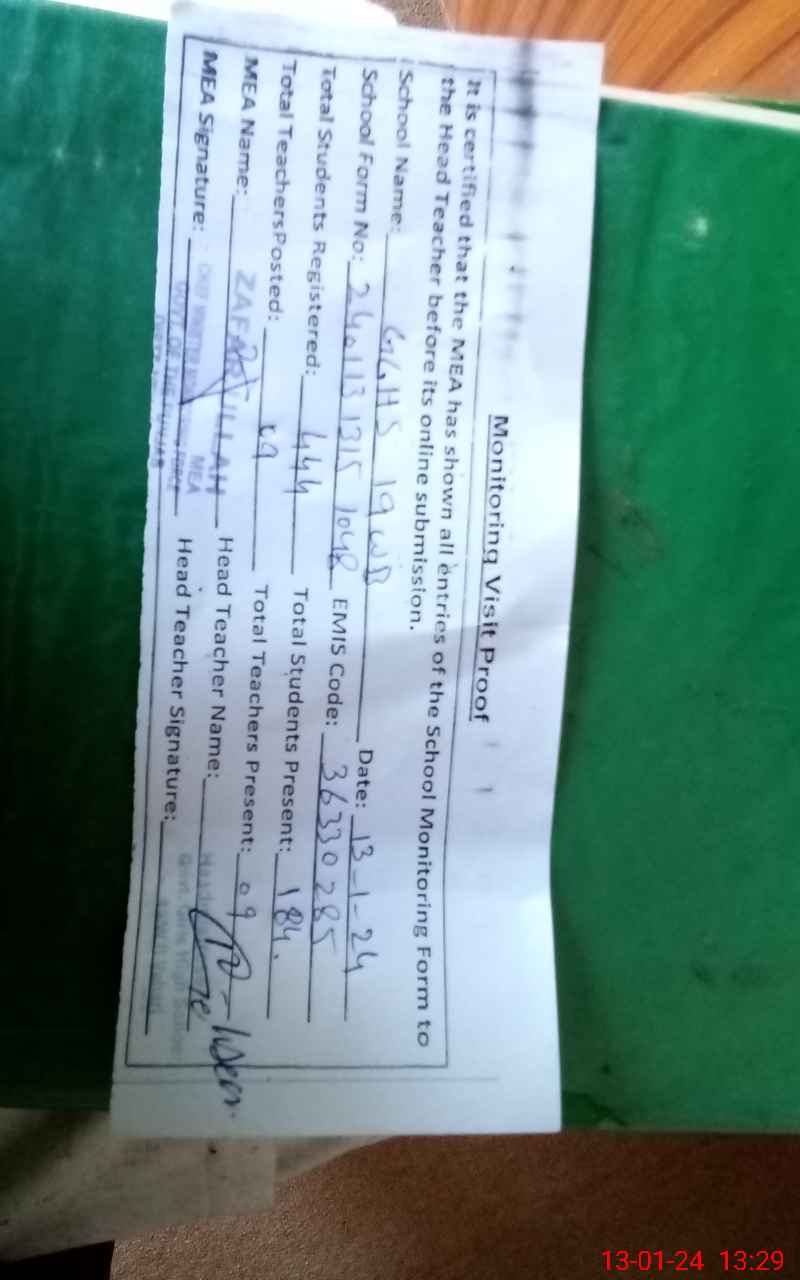 Monitoring Visit Proof
It is certified that the MEA has shown all entries of the School Monitoring Form to
the Head Teacher before its online submission.
School Name: GGHS 19 WB Date: 13-1-24
School Form No: 2401131315 1048 EMIS Code: 36330285
Total Students Registered: 444 Total Students Present: 184.
Total TeachersPosted: 09 Total Teachers Present: 09
MEA Name: ZAFAR ULLAH Head Teacher Name:
MEA
MEA Signature: Head Teacher Signature:
GOVT. OF THE PUNJAB
13-01-24 13:29